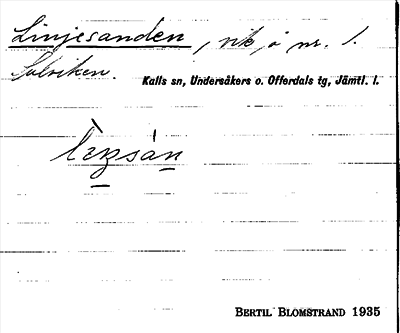 Linjesanden, vik, å nr. 1.
Salviken.
Kalls sn, Undersåkers o. Offerdals tg, Jämtl. l.
BERTIL BLOMSTRAND 1935